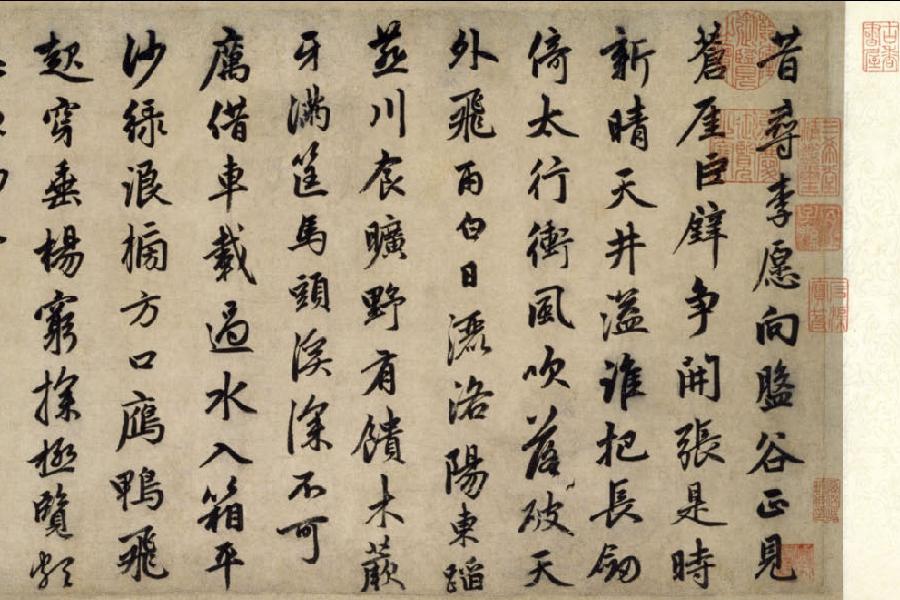 昔尋李愿向盤谷正見
蒼崖巨壁爭開張是時
新晴天井溢誰把長劒
倚太行衝風吹落破天
外飛雨白日灑洛陽東蹈
燕川食曠野有饋木蕨
牙滿筐馬頭溪深不可
厲借車載過水入箱平
沙綠浪搒方口鴈鴨飛
起穿垂楊窮探極覽頗